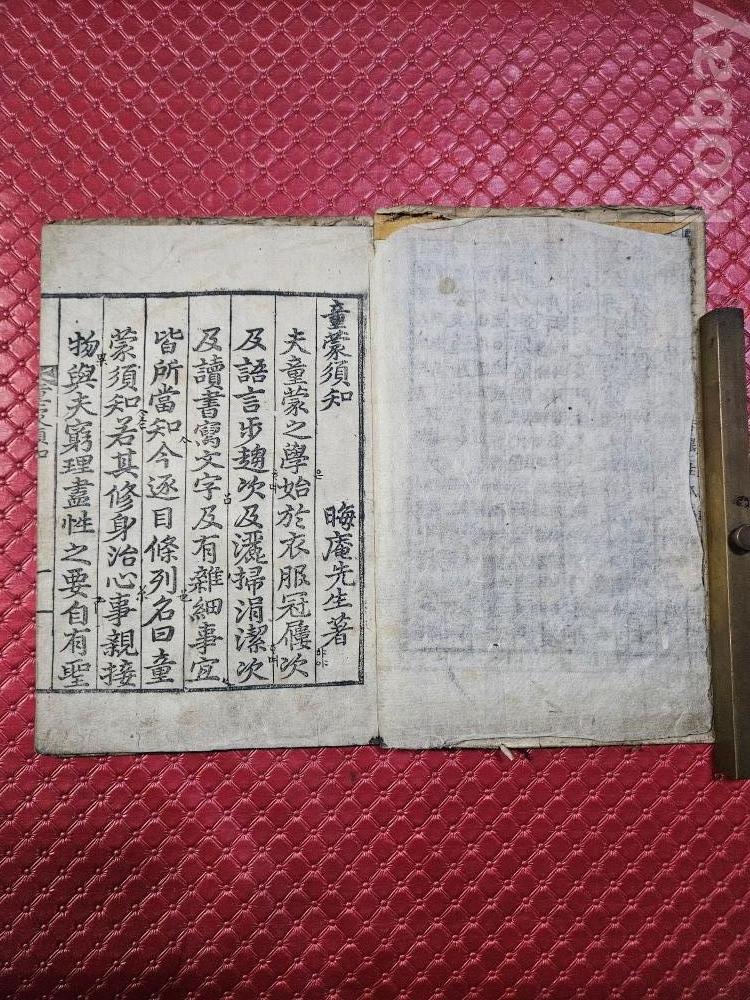 童蒙須知 晦庵先生著
夫童蒙之學始於衣服冠屨次
及語言步趨次及灑掃涓潔次
及讀書寫文字及有雜細事宜
皆所當知今逐目條列名曰童
蒙須知若其修身治心事親接
物與夫窮理盡性之要自有聖
kobsy